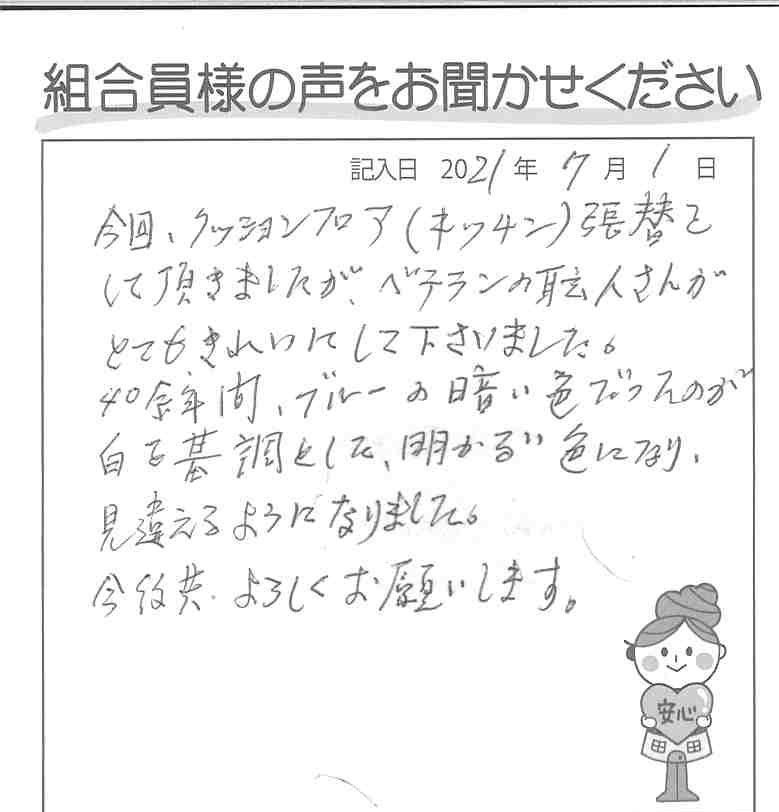 組合員様の声をお聞かせください
記入日 2021年 7月 1日
今回、クッションフロア(キッチン)張替を
して頂きましたが、ベテランの職人さんが
とてもきれいにして下さいました。
40余年間、ブルーの暗い色だったのが
白を基調とした、明かるい色になり、
見違えるようになりました。
今後共、よろしくお願いします。
安心